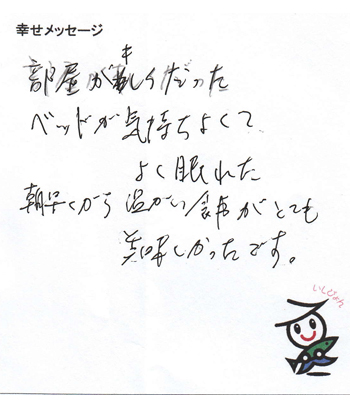 幸せメッセージ
部屋がキレイだった
ベッドが気持ちよくて
よく眠れた
朝早くから温かい食事がとても
美味しかったです。
いしじゃん